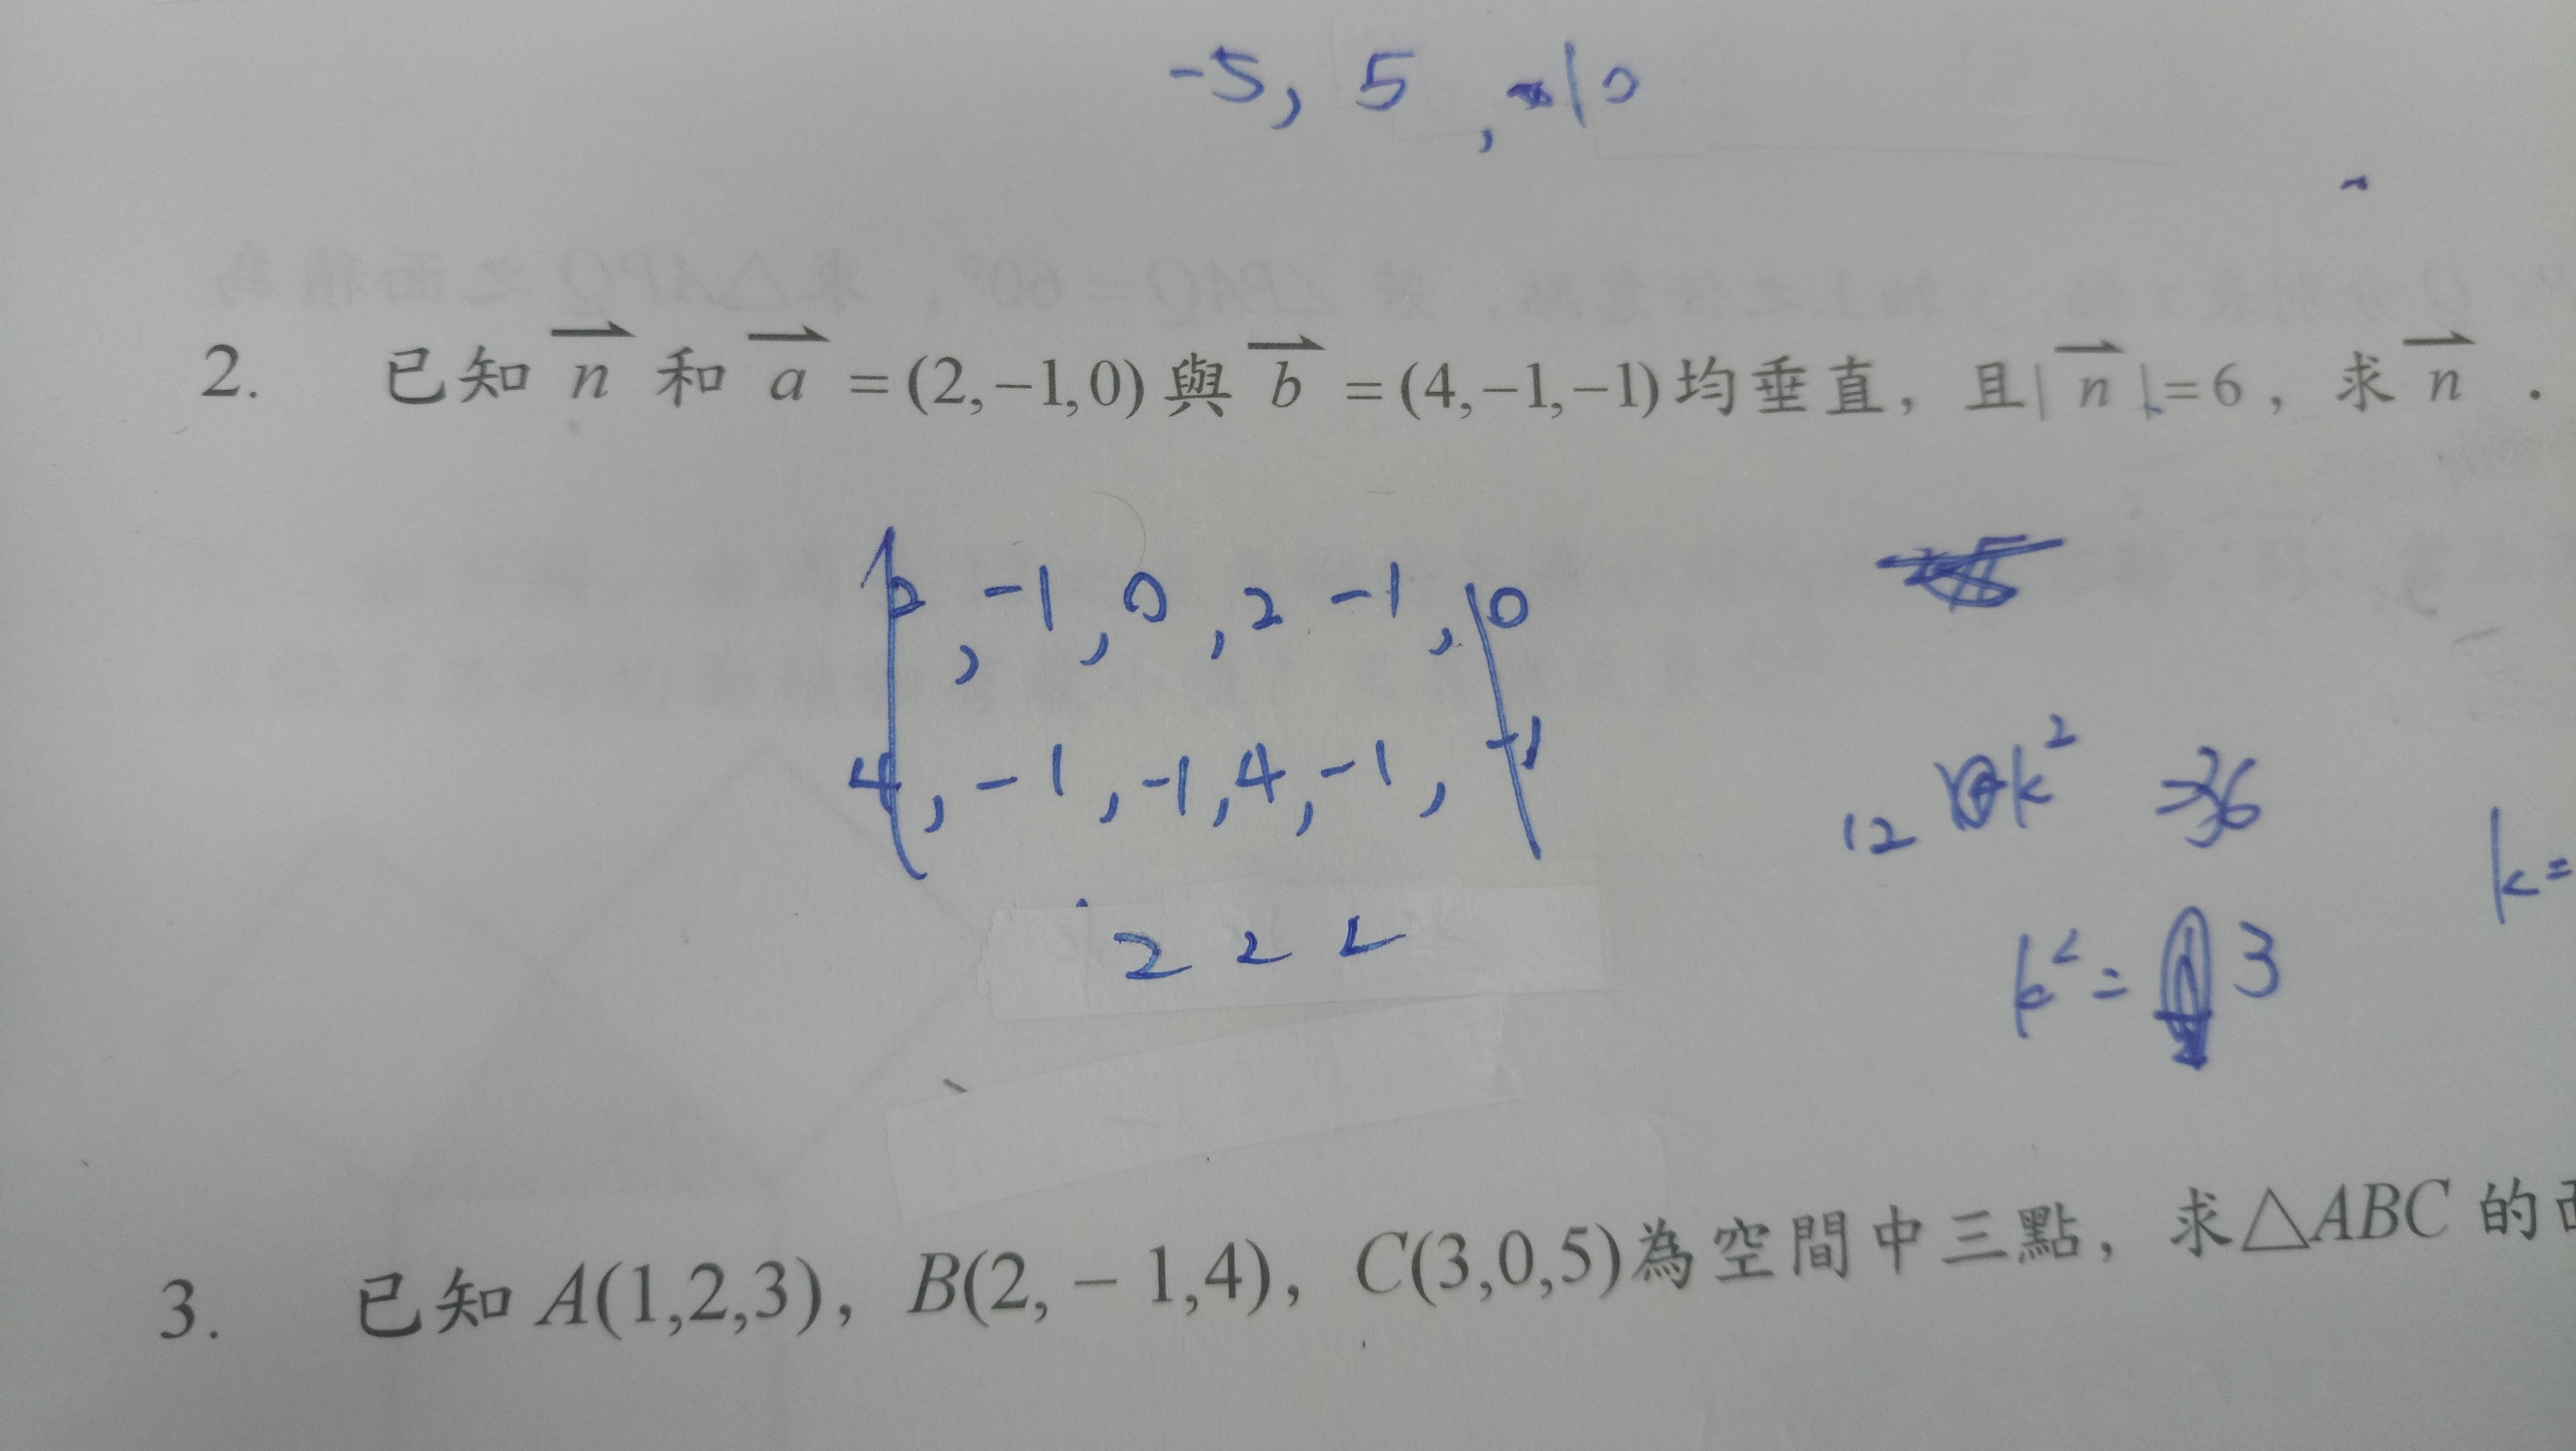 -5, 5, 10
2. 已知 n 和 a =(2,−1,0)與 b =(4,−1,−1)均垂直，且| n |=6，求 n .
2, -1, 0, 2 -1, 0
4, -1, -1, 4, -1, -1
12 k² =36
k=
2 2 2
k² = 3
3. 已知 A(1,2,3)，B(2,−1,4)，C(3,0,5)為空間中三點，求△ABC 的